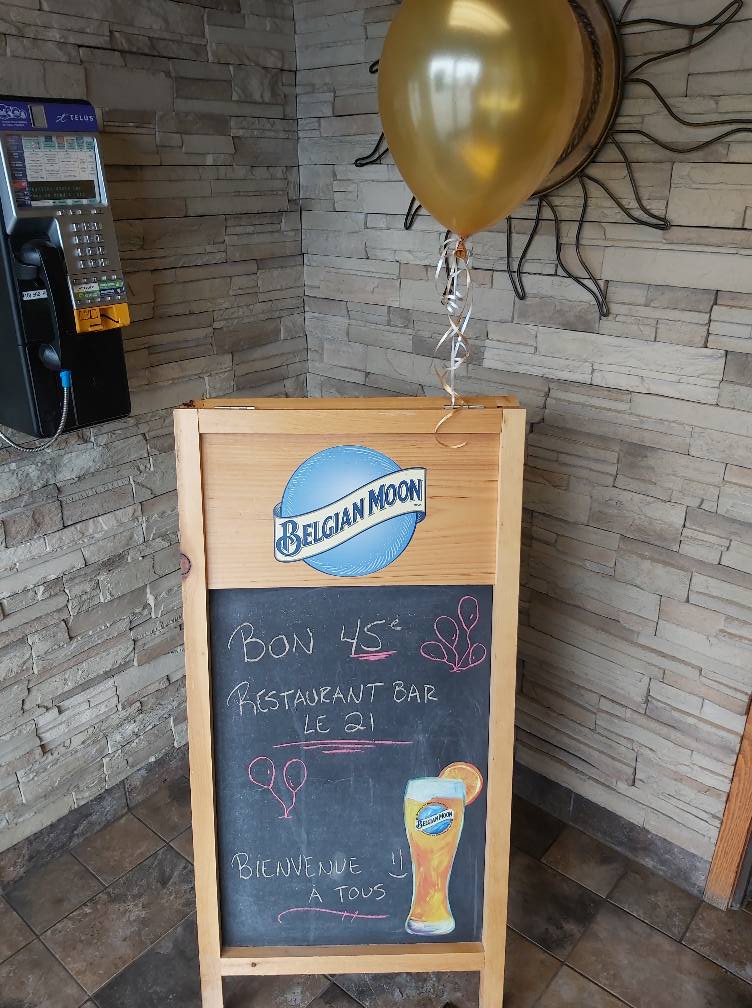 TELUS
BELGIAN MOON
BON 45e
RESTAURANT BAR
LE 21
BELGIAN MOON
BIENVENUE
À TOUS